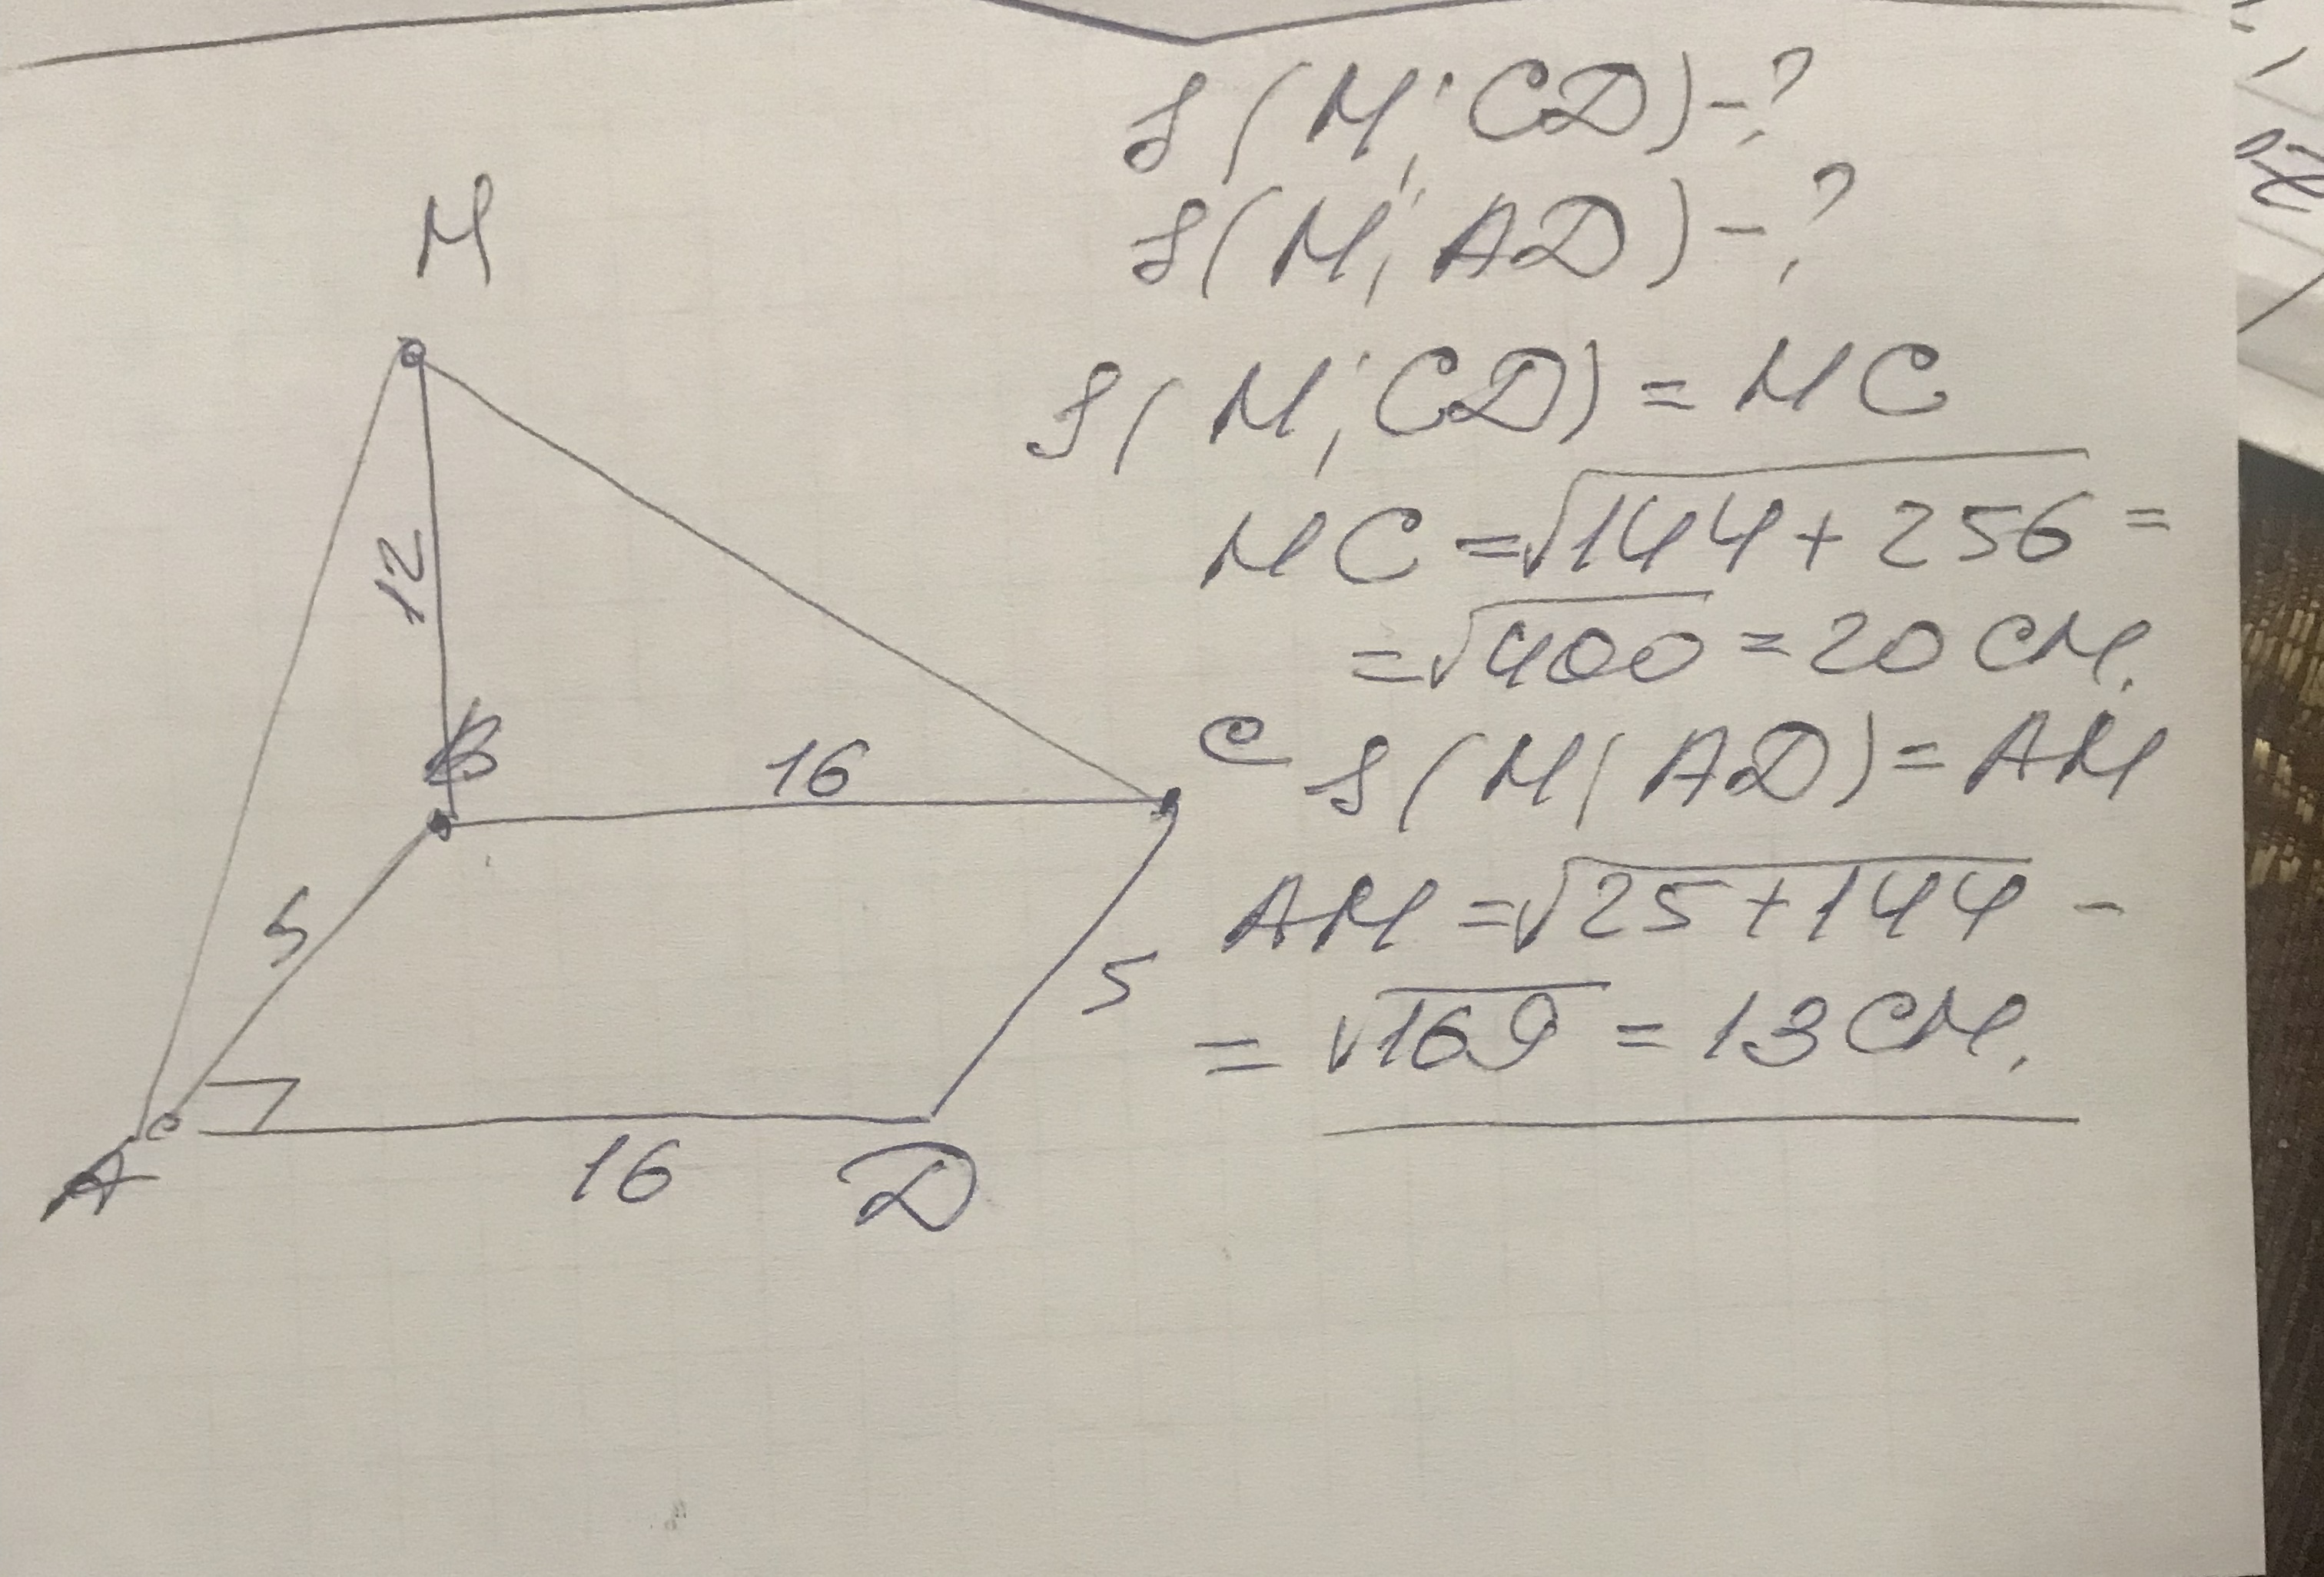 M
12
B
16
C
5
5
A
16
D
ρ(M; CD) - ?
ρ(M; AD) - ?
ρ(M; CD) = MC
MC = √144 + 256 =
= √400 = 20 см.
ρ(M; AD) = AM
AM = √25 + 144 -
= √169 = 13 см.